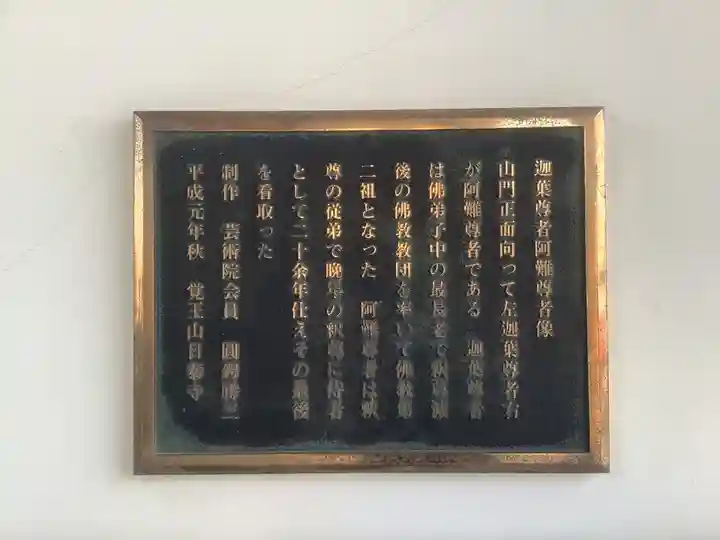 迦葉尊者阿難尊者像
山門正面向って左迦葉尊者右
が阿難尊者である　迦葉尊者
は佛弟子中の最長老で釈尊滅
後の佛教教団を率いて佛教第
二祖となった　阿難尊者は釈
尊の従弟で晩年の釈尊に侍者
として二十余年仕えその最後
を看取った
制作　芸術院会員　圓鍔勝三
平成元年秋　覚王山日泰寺